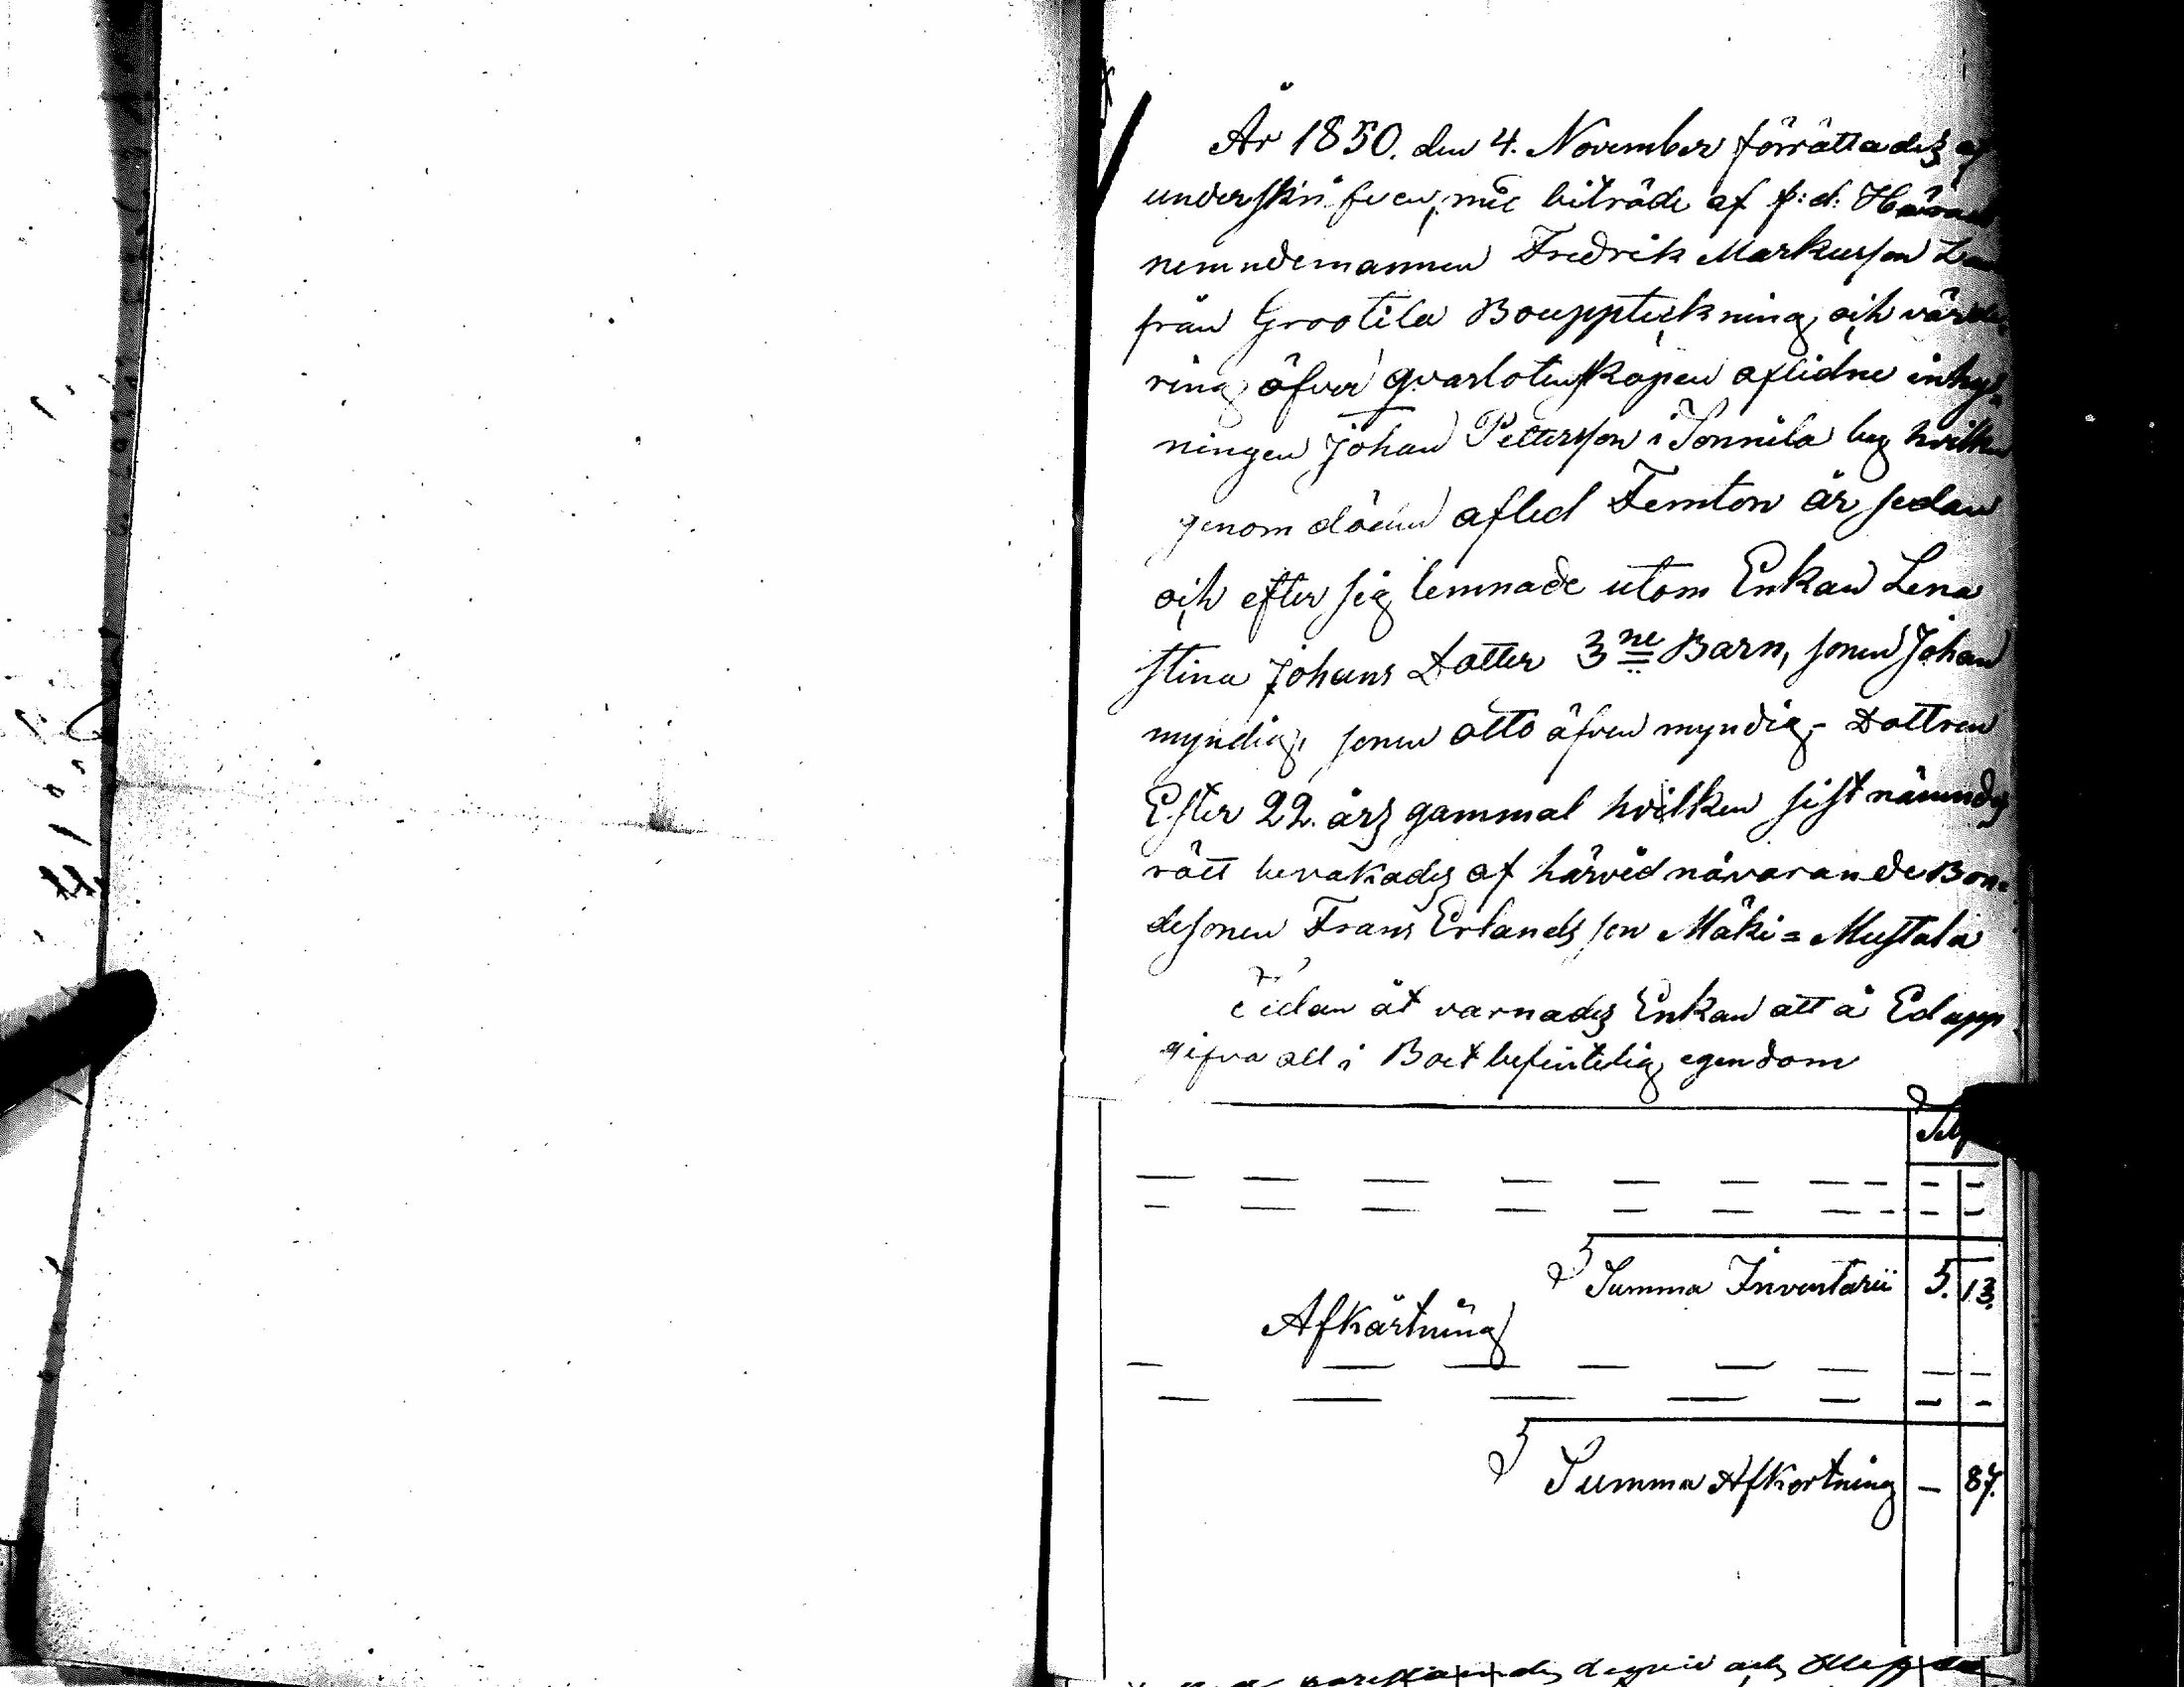 År 1850. den 4. November förrättades af
underskrifven, med biträde af f: d: Härad
nemndemannen Fredrik Markusson
från Grootila Bouppteckning och värde-
ring öfver qvarlotenskapen aflidne inhys-
ningen Johan Pettersson i Sonnila by hvilken
genom döden afled Femton år sedan
och efter sig lemnade utom Enkan Lena
Stina Johans Dotter 3ne Barn, sonen Johan
myndig, sonen Otto äfven myndig - Dottren
Ester 22. års gammal hvilken sistnämndes
rätt bevakades af härvid närvarande Bon=
desonen Frans Erlandsson Mäki=Mustala
Sedan åtvarnades Enkan att å Ed upp
gifva all i Boet befintelig egendom
Silf
Summa Inventarii 5. 13.
Afkårtning
Summa Afkortning — 87.